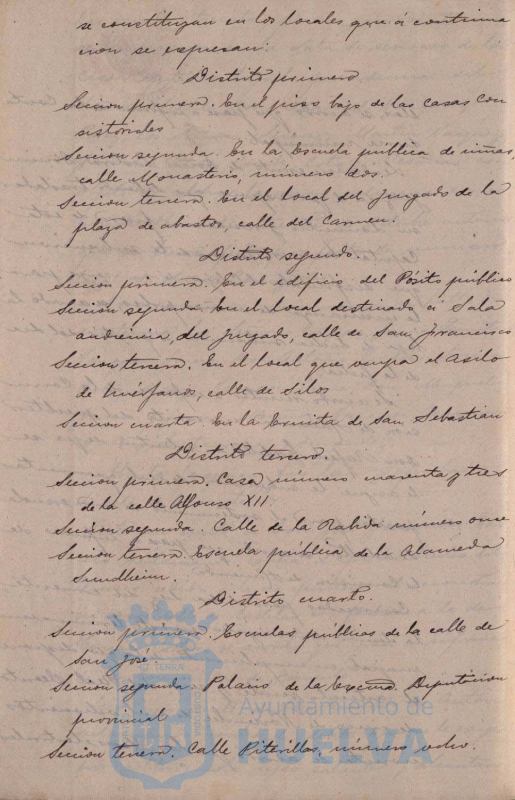 se constituyan en los locales que á continua
cion se expresan:
Distrito primero
Seccion primera. En el piso bajo de las casas con
sistoriales
Seccion segunda. En la Escuela pública de niñas,
calle Monasterio, número dos.
Seccion tercera. En el local del Juzgado de la
plaza de abastos, calle del Carmen.
Distrito segundo.
Seccion primera. En el edificio del Pósito público
Seccion segunda. En el local destinado á Sala
audiencia, del Juzgado, calle de San Francisco
Seccion tercera. En el local que ocupa el Asilo
de huérfanos, calle de Silos
Seccion cuarta. En la Ermita de San Sebastian
Distrito tercero.
Seccion primera. Casa número cuarenta y tres
de la calle Alfonso XII
Seccion segunda. Calle de la Rabida número once
Seccion tercera. Escuela pública de la Alameda
Sundheim.
Distrito cuarto.
Seccion primera. Escuelas públicas de la calle de
San José
Seccion segunda. Palacio de la Excma. Diputacion
provincial
Seccion tercera. Calle Puterillas, número ocho.
Ayuntamiento de
HUELVA